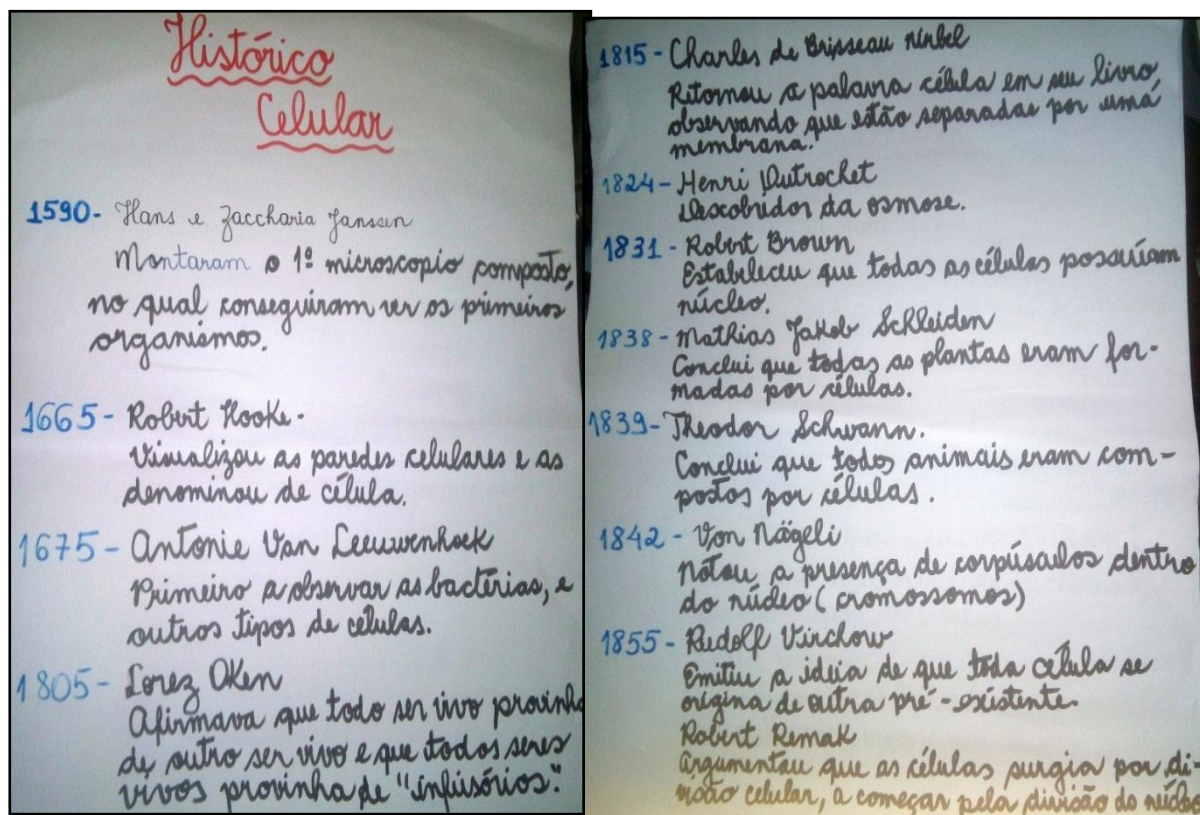 Histórico
Celular
1590- Hans e Zaccharia Janssen
Montaram o 1º microscopio composto,
no qual conseguiram ver os primeiros
organismos.
1665- Robert Hooke-
Visualizou as paredes celulares e as
denominou de célula.
1675- Antonie Van Leeuwenhoek
Primeiro a observar as bactérias, e
outros tipos de células.
1805- Lorez Oken
Afirmava que todo ser vivo provinha
de outro ser vivo e que todos seres
vivos provinha de "infusórios".
1815- Charles de Brisseau Mirbel
Ritornou a palavra célula em seu livro,
observando que estão separadas por uma
membrana.
1824- Henri Dutrochet
Descobridor da osmose.
1831- Robert Brown
Estabeleceu que todas as células possuíam
núcleo.
1838- Mathias Jakob Schleiden
Conclui que todas as plantas eram for-
madas por células.
1839- Theodor Schwann.
Conclui que todos animais eram com-
postos por células.
1842- Von Nägeli
Notou a presença de corpúsculos dentro
do núcleo (cromossomos)
1855- Rudolf Virchow
Emitiu a ideia de que toda célula se
origina de outra pré-existente.
Robert Remak
Argumentou que as células surgia por di-
visão celular, a começar pela divisão do núcleo